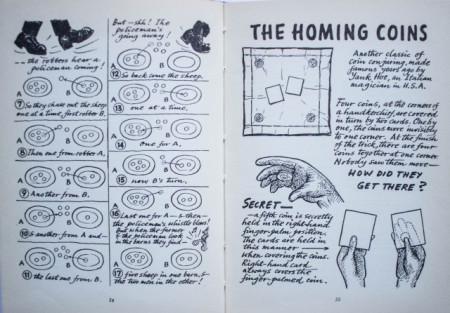 --- the robbers hear a
policeman coming!
A
B
⑦ So they chase out the sheep
one at a time, first robber B.
A
B
⑧ Then one from robber A,
A
B
⑨ Another from B.
A
B
⑩ & another from A and—
A
B
⑪ the last one from B.
But —shh! The
policeman's
going away!
A
B
⑫ So back come the sheep,
A
B
⑬ one at a time.
A
B
⑭ one for A,
A
B
⑮ now B's turn,
A
B
⑯ Last one for A — & then —
the policeman's whistle blows!
But when the farmer
& the policeman look
in the barns they find —
A
B
⑰ five sheep in one barn, &
the two men in the other!
THE HOMING COINS
Another classic of
coin conjuring, made
famous years ago by
Yank Hoe, an Italian
magician in U.S.A.
Four coins, at the corners of
a handkerchief, are covered
in turn by two cards. One by
one, the coins move invisibly
to one corner. At the finish
of the trick, there are four
coins together at one corner.
Nobody saw them move—
HOW DID THEY
GET THERE?
SECRET—
a fifth coin is secretly
held in the right-hand
finger-palm position.
The cards are held in
this manner
when covering the coins.
Right-hand card
always covers the
finger-palmed coin.